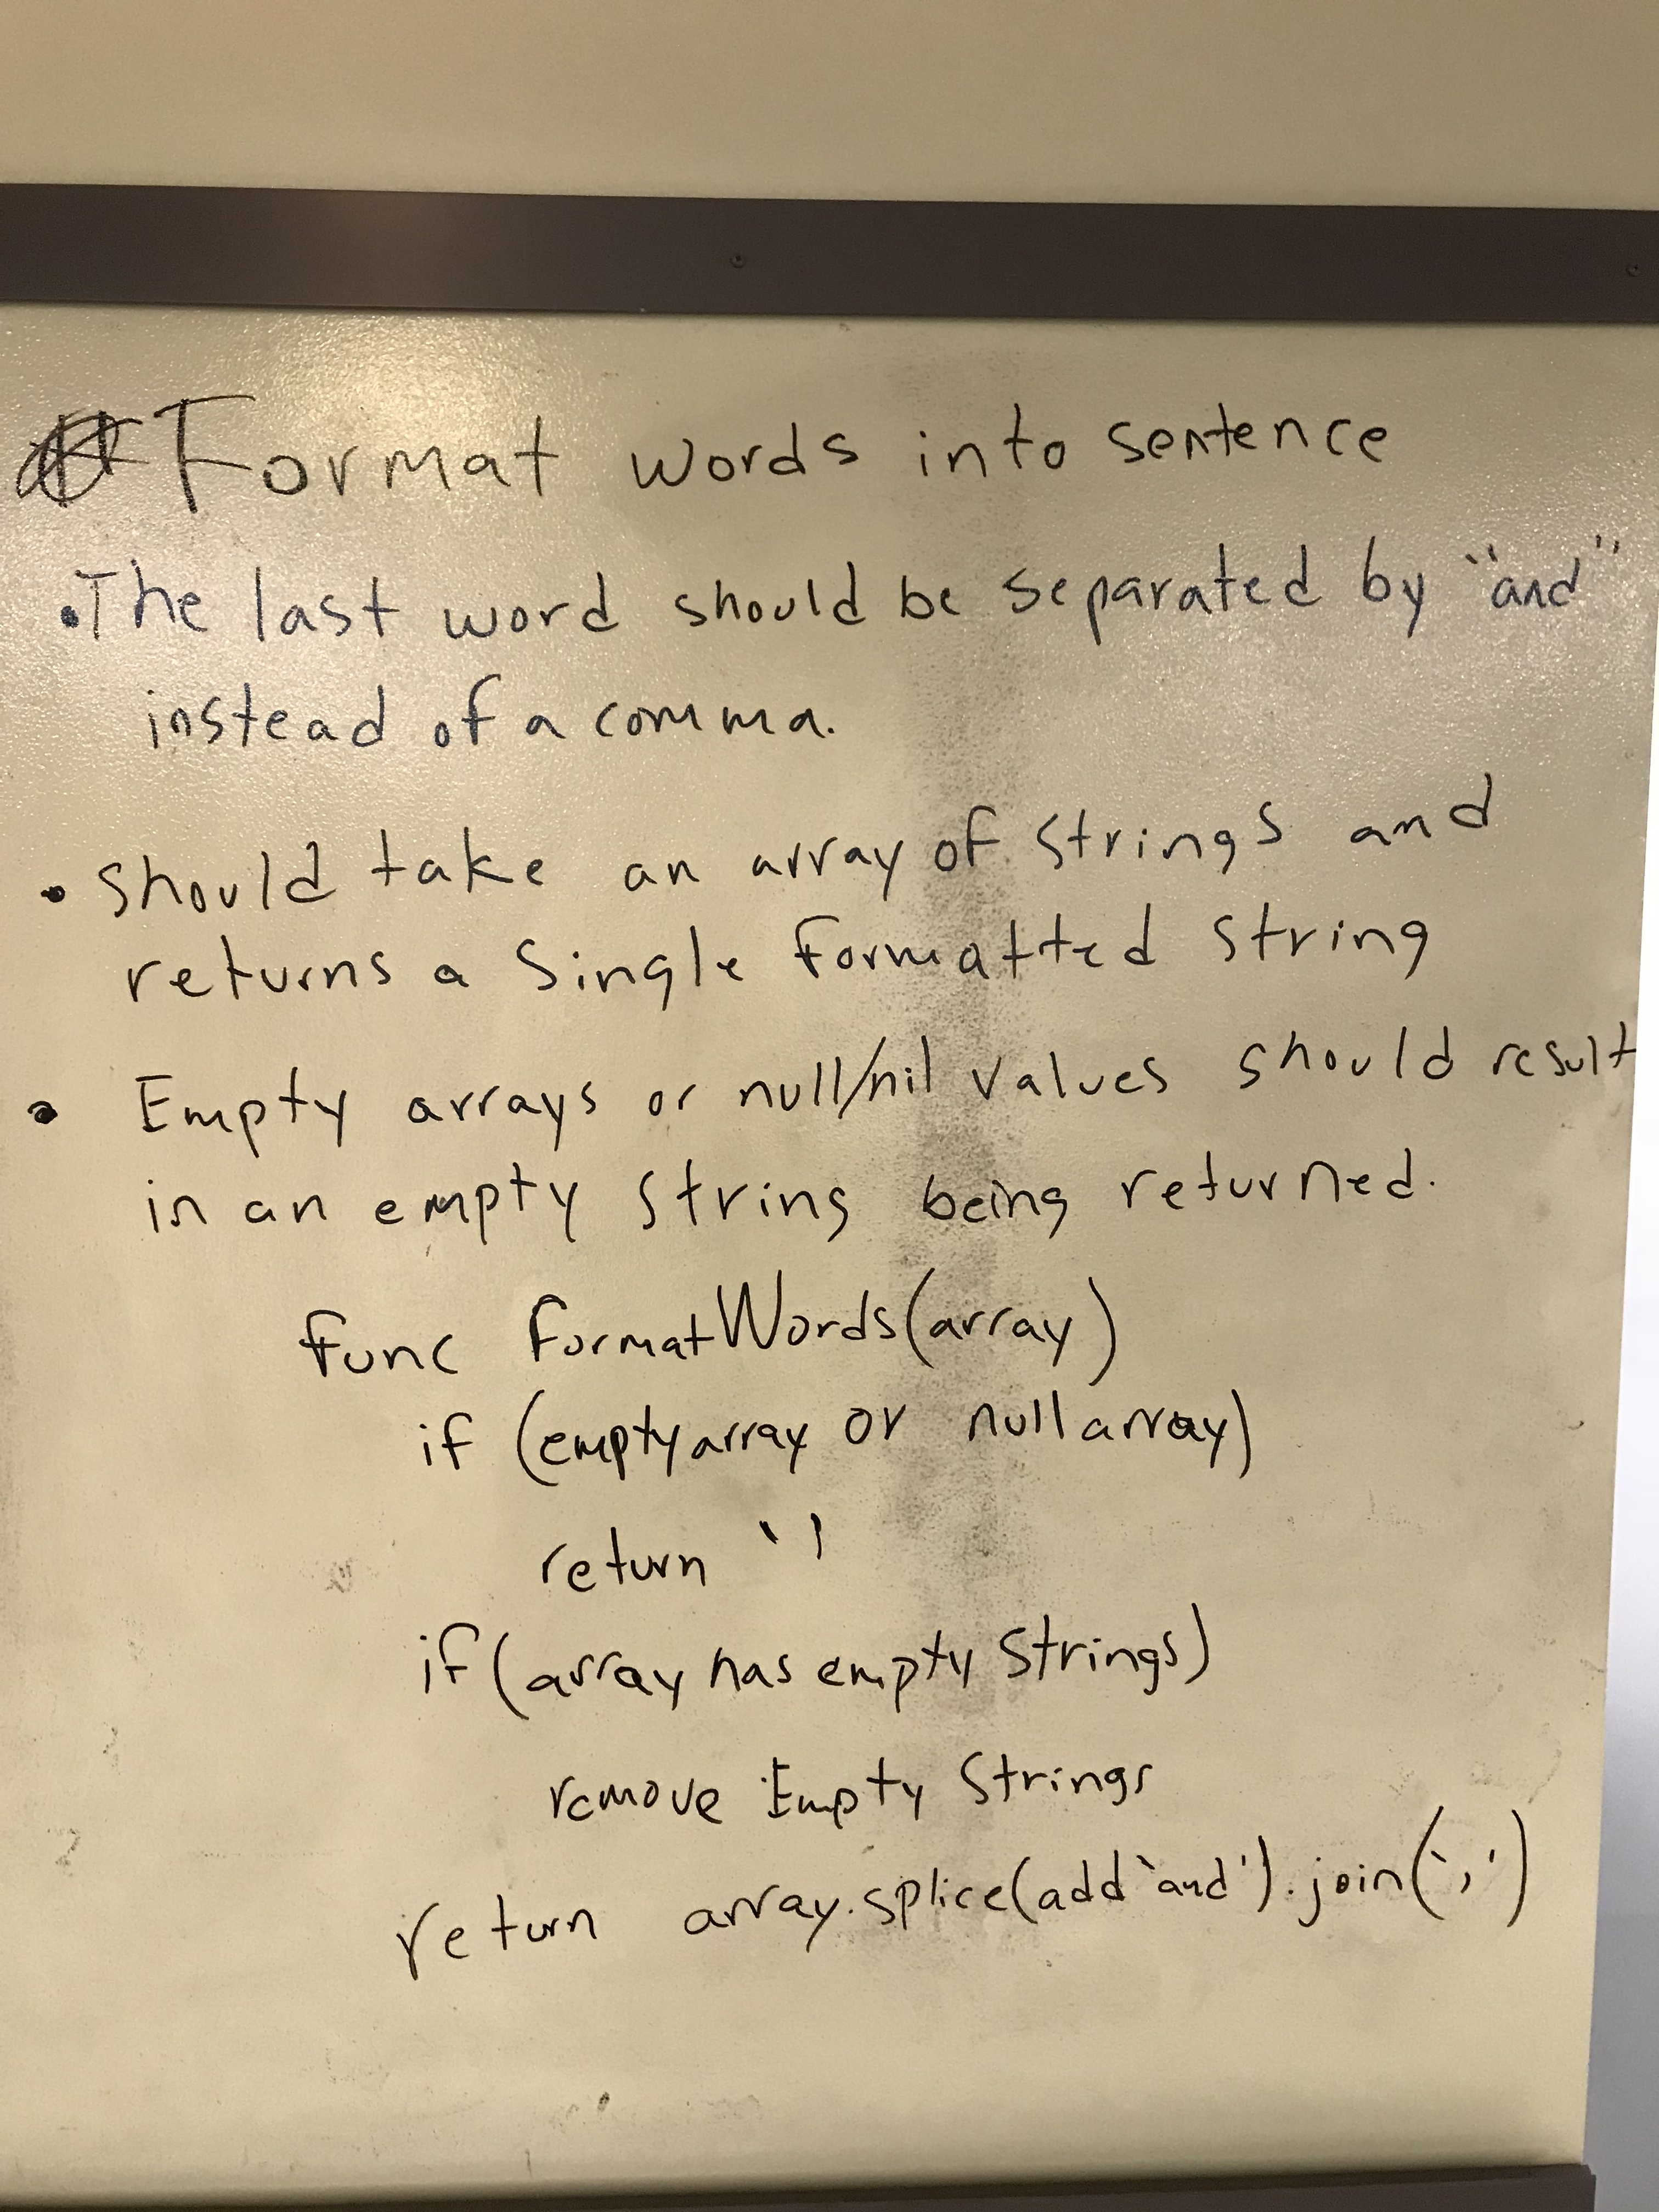 Format words into sentence
• The last word should be separated by "and"
instead of a comma.
• should take an array of strings and
returns a single formatted string
• Empty arrays or null/nil values should result
in an empty string being returned.
func formatWords(array)
if (empty array or null array)
return ''
if (array has empty strings)
remove Empty Strings
return array.splice(add 'and').join(',')